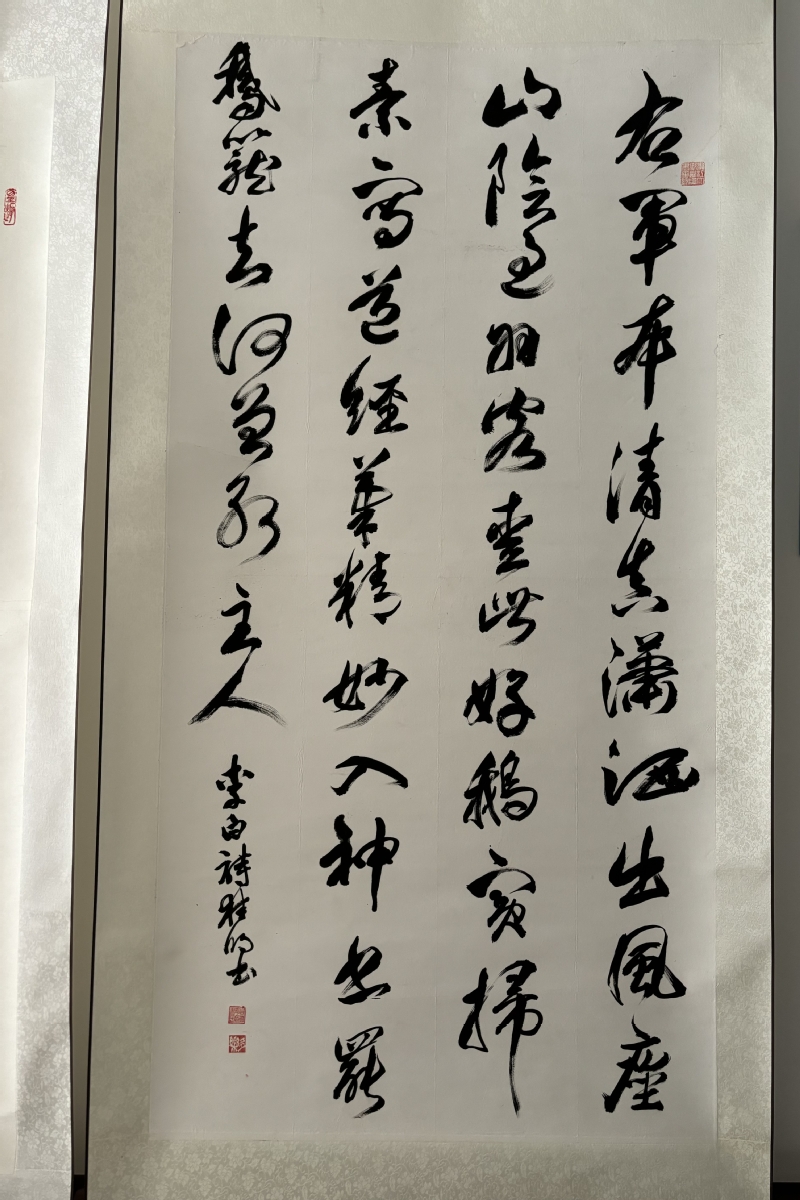 右軍本清真瀟洒出風塵
山陰過羽客愛此好鵝賓掃
素寫道經筆精妙入神書罷
鵝籠去何曾別主人
李白詩 書